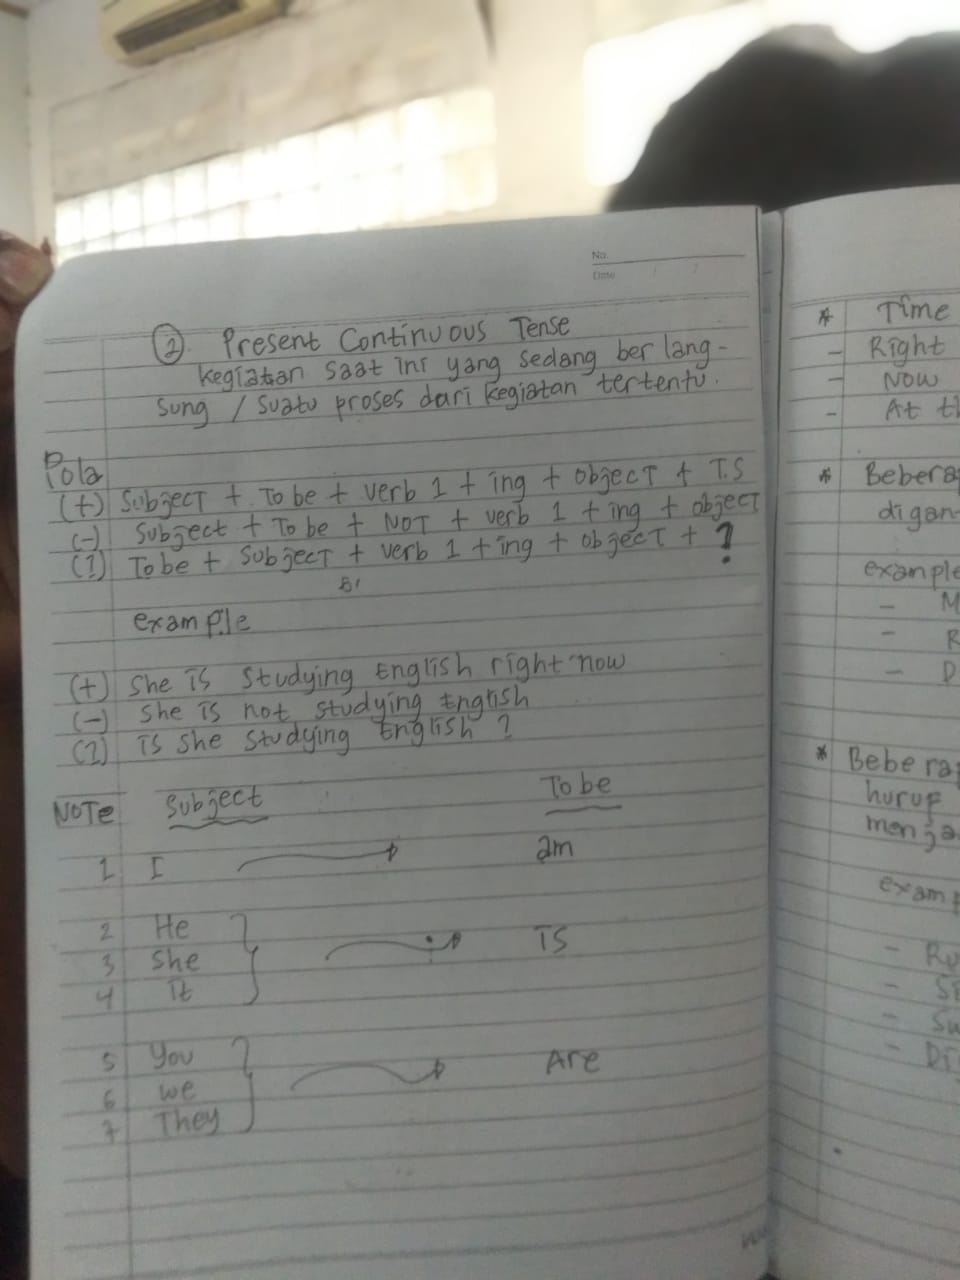 No.
Date
② Present Continuous Tense
kegiatan saat ini yang sedang ber lang -
sung / suatu proses dari kegiatan tertentu.
Pola
(+) Subject + To be + verb 1 + ing + object + T.S
(-) Subject + To be + NOT + verb 1 + ing + object
(?) To be + Subject + verb 1 + ing + object + ?
example
(+) She is studying English right now
(-) She is not studying English
(?) is she studying English ?
NOTE Subject To be
1 I am
2 He
3 She is
4 it
5 You
6 we Are
7 They
* Time
- Right
- Now
- At
*
digan
example
- M
- R
- D
*
hurup
- Ru
- Si
- Su